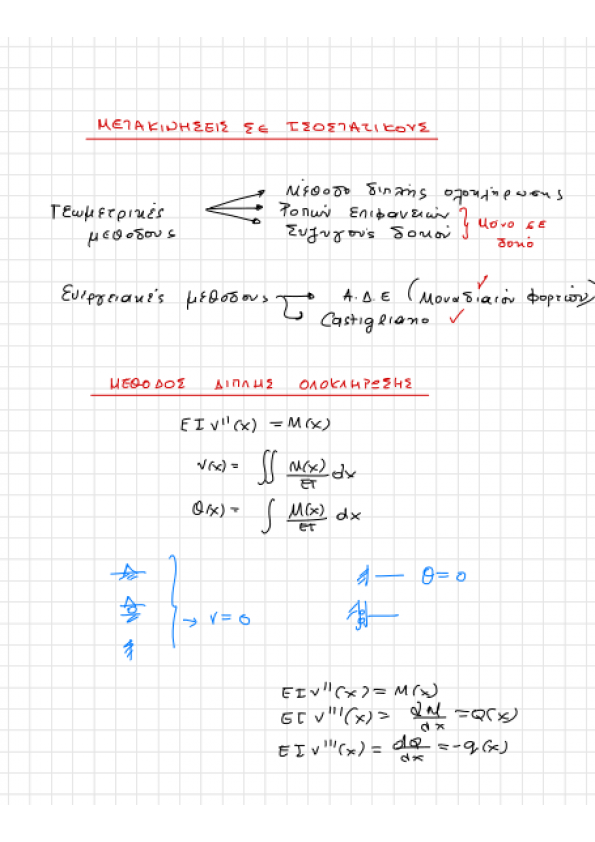 ΜΕΤΑΚΙΝΗΣΕΙΣ ΣΕ ΙΣΟΣΤΑΤΙΚΟΥΣ
Μέθοδο διπλής ολοκλήρωσης
Γεωμετρικές
Ροπών Επιφανειών
μεθόδους
Συζυγούς δοκού
Μόνο ΣΕ
δοκό
Ενεργειακές μεθόδους → Α.Δ.Ε (Μοναδιαίου φορτίου) ✓
Castigliano ✓
ΜΕΘΟΔΟΣ ΔΙΠΛΗΣ ΟΛΟΚΛΗΡΩΣΗΣ
EI v''(x) = M(x)
v(x) = ∬ M(x)/EI dx
θ(x) = ∫ M(x)/EI dx
→ v = 0
θ = 0
EI v''(x) = M(x)
EI v'''(x) = dM/dx = Q(x)
EI v''''(x) = dQ/dx = -q(x)